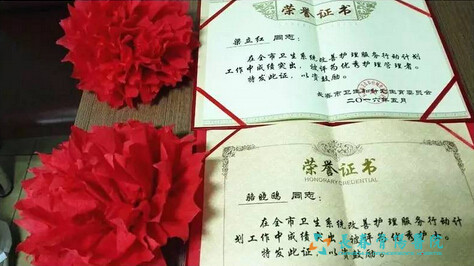 荣誉证书
梁立红 同志:
在全市卫生系统改善护理服务行动计划
工作中成绩突出,被评为优秀护理管理者。
特发此证,以资鼓励。
长春市卫生和计划生育委员会
二〇一六年五月
荣誉证书
HONORARY CREDENTIAL
骆晓鸥 同志:
在全市卫生系统改善护理服务行动计
划工作中成绩突出,被评为优秀护士。
特发此证,以资鼓励。